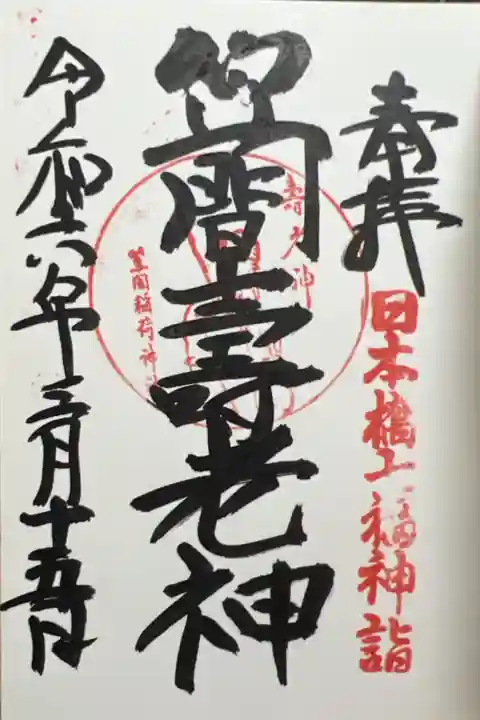 奉拝
日本橋七福神詣
笠間寿老神
壽老神
笠間稲荷神社
令和六年三月十五日